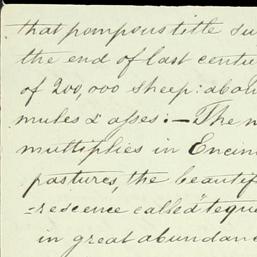 that pompous title su
the end of last centu
of 200,000 sheep: abou
mules & asses:—The m
multiplies in Encin
pastures, the beautif
-rescence called "teque
in great abundan